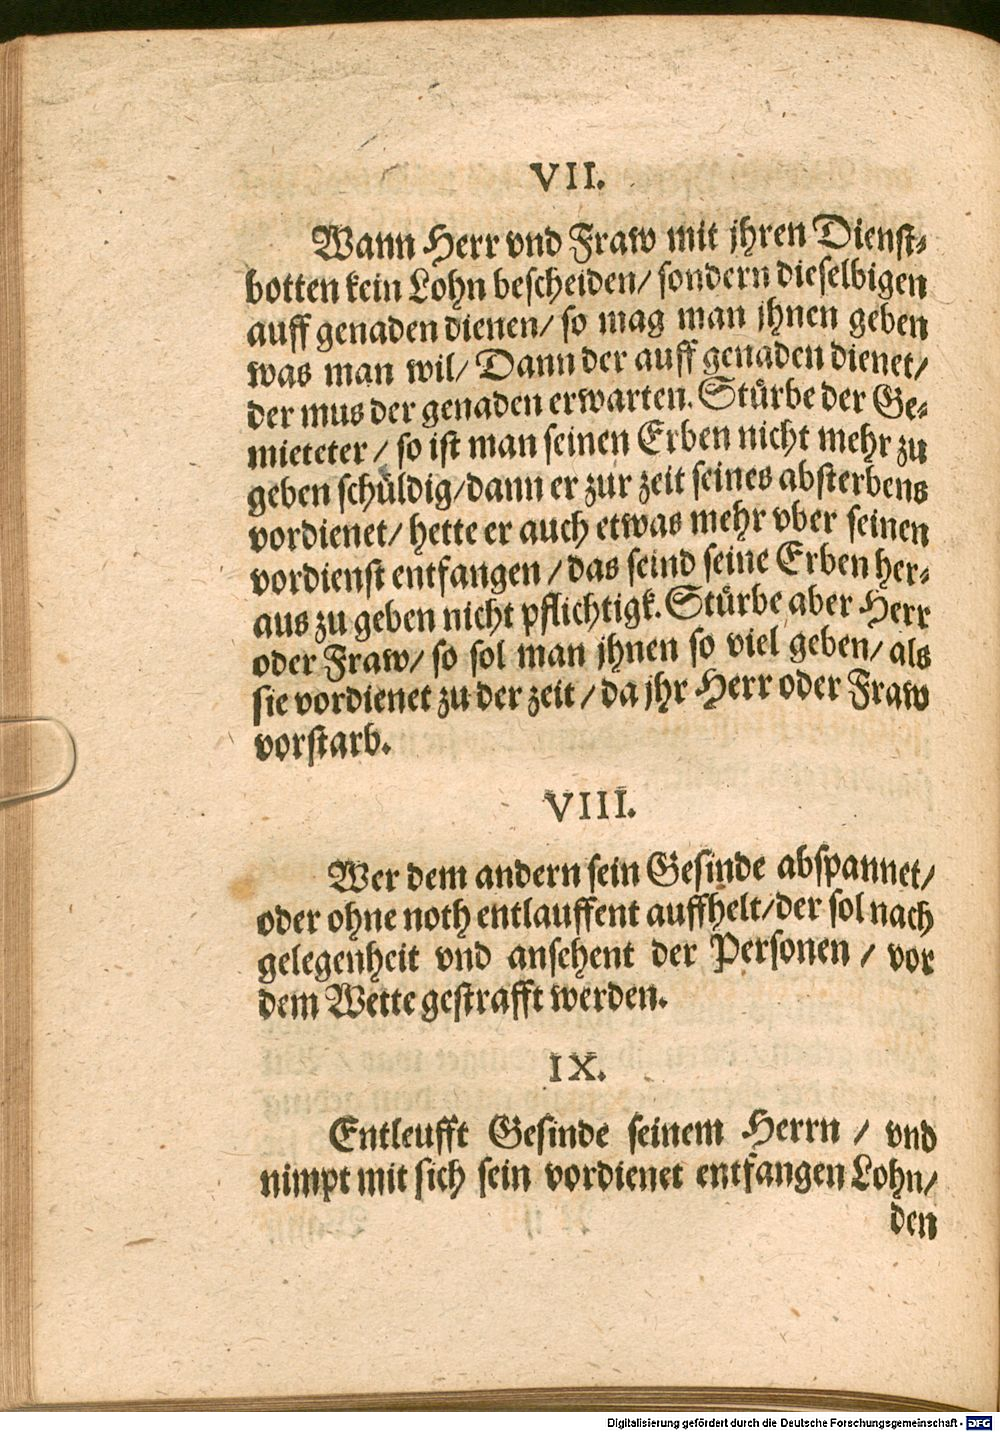 VII.
Wann Herr vnd Fraw mit jhren Dienst⸗
botten kein Lohn bescheiden/ sondern dieselbigen
auff genaden dienen/ so mag man jhnen geben
was man wil/ Dann der auff genaden dienet/
der mus der genaden erwarten. Stürbe der Ge⸗
mieteter / so ist man seinen Erben nicht mehr zu
geben schüldig/dann er zur zeit seines absterbens
vordienet/ hette er auch etwas mehr vber seinen
vordienst entfangen /das seind seine Erben her⸗
aus zu geben nicht pflichtigk. Stürbe aber Herr
oder Fraw/ so sol man jhnen so viel geben/ als
sie vordienet zu der zeit /da jhr Herr oder Fraw
vorstarb.
VIII.
Wer dem andern sein Gesinde abspannet/
oder ohne noth entlauffent auffhelt/der sol nach
gelegenheit vnd ansehent der Personen / vor
dem Wette gestrafft werden.
IX.
Entleufft Gesinde seinem Herrn / vnd
nimpt mit sich sein vordienet entfangen Lohn/
den
Digitalisierung gefördert durch die Deutsche Forschungsgemeinschaft - DFG